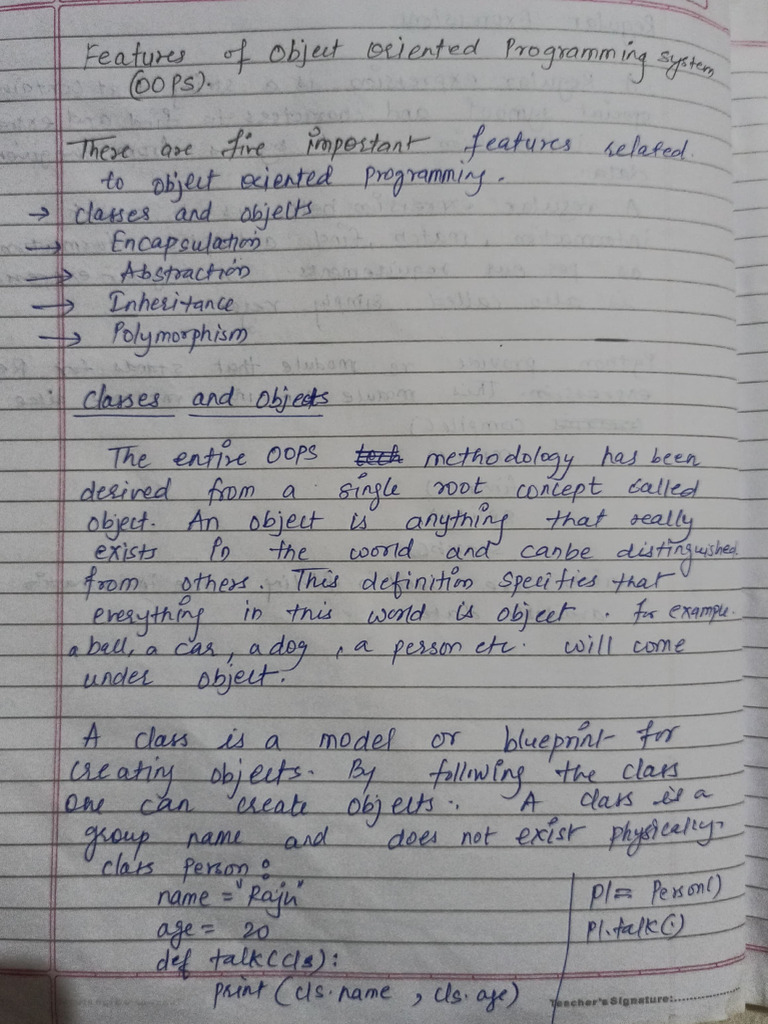 Features of Object Oriented Programming System
(OOPS).
There are five important features related
to object oriented programming.
→ Classes and objects
→ Encapsulation
→ Abstraction
→ Inheritance
→ Polymorphism
Classes and Objects
The entire OOPS methodology has been
derived from a single root concept called
object. An object is anything that really
exists in the world and canbe distinguished
from others. This definition specifies that
everything in this world is object. for example.
a ball, a car, a dog, a person etc. will come
under object.
A class is a model or blueprint for
creating objects. By following the class
one can create objects. A class is a
group name and does not exist physically.
class Person:
name = "Raju"
age = 20
def talk(cls):
print (cls.name, cls.age)
P1 = Person()
P1.talk()
Teacher's Signature: